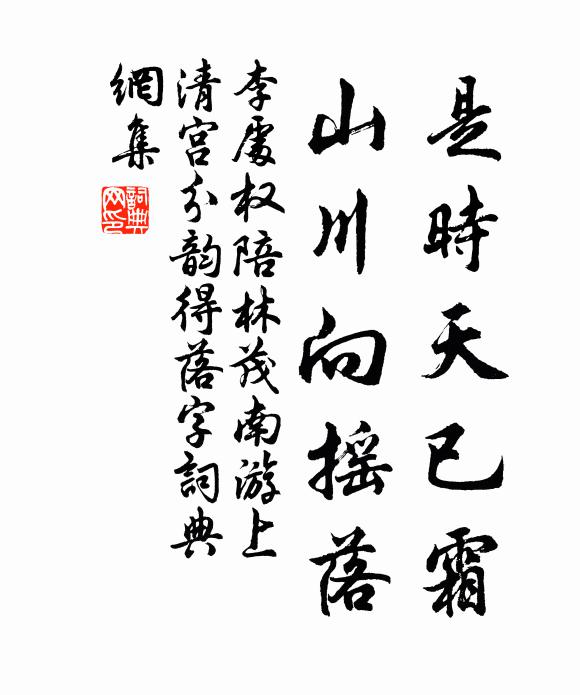 是時天已霜
山川向摇落
李處权陪林茂南游上
清宫分韵得落字詞典
網集
詞典网印